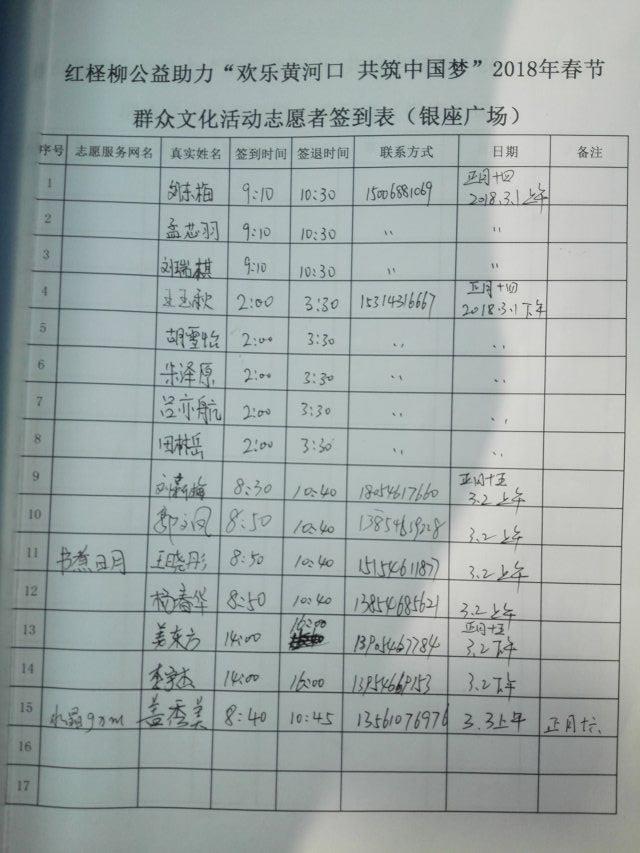 红柽柳公益助力“欢乐黄河口 共筑中国梦”2018年春节
群众文化活动志愿者签到表（银座广场）
序号 志愿服务网名 真实姓名 签到时间 签退时间 联系方式 日期 备注
1 刘东梅 9:10 10:30 15006881069 正月十四 2018.3.1上午
2 孟芯羽 9:10 10:30 〃 〃
3 刘瑞棋 9:10 10:30 〃 〃
4 2:00 3:30 15314316667 正月十四 2018.3.1下午
5 胡雪怡 2:00 3:30 〃 〃
6 朱泽原 2:00 3:30 〃 〃
7 吕亦航 2:00 3:30 〃 〃
8 田林岳 2:00 3:30 〃 〃
9 8:30 10:40 18054617660 正月十五 3.2上午
10 郭文凤 8:50 10:40 3.2上午
11 书煮日月 王晓彤 8:50 10:40 15154611877 3.2上午
12 杨春华 8:50 10:40 13854685621 3.2上午
13 姜东方 14:00 16:00 13905467784 正月十五 3.2下午
14 14:00 16:00 3.2下午
15 盖秀美 8:40 10:45 13561076976 3.3上午 正月十六
16
17